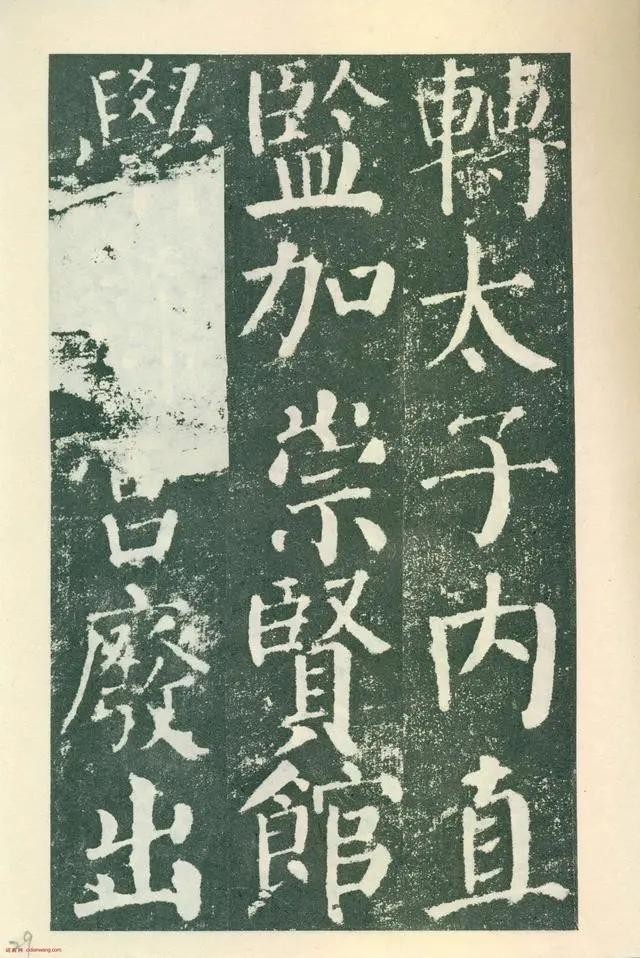 轉太子内直
監加崇賢館
學廢出
29
词典网 cidianwang.com